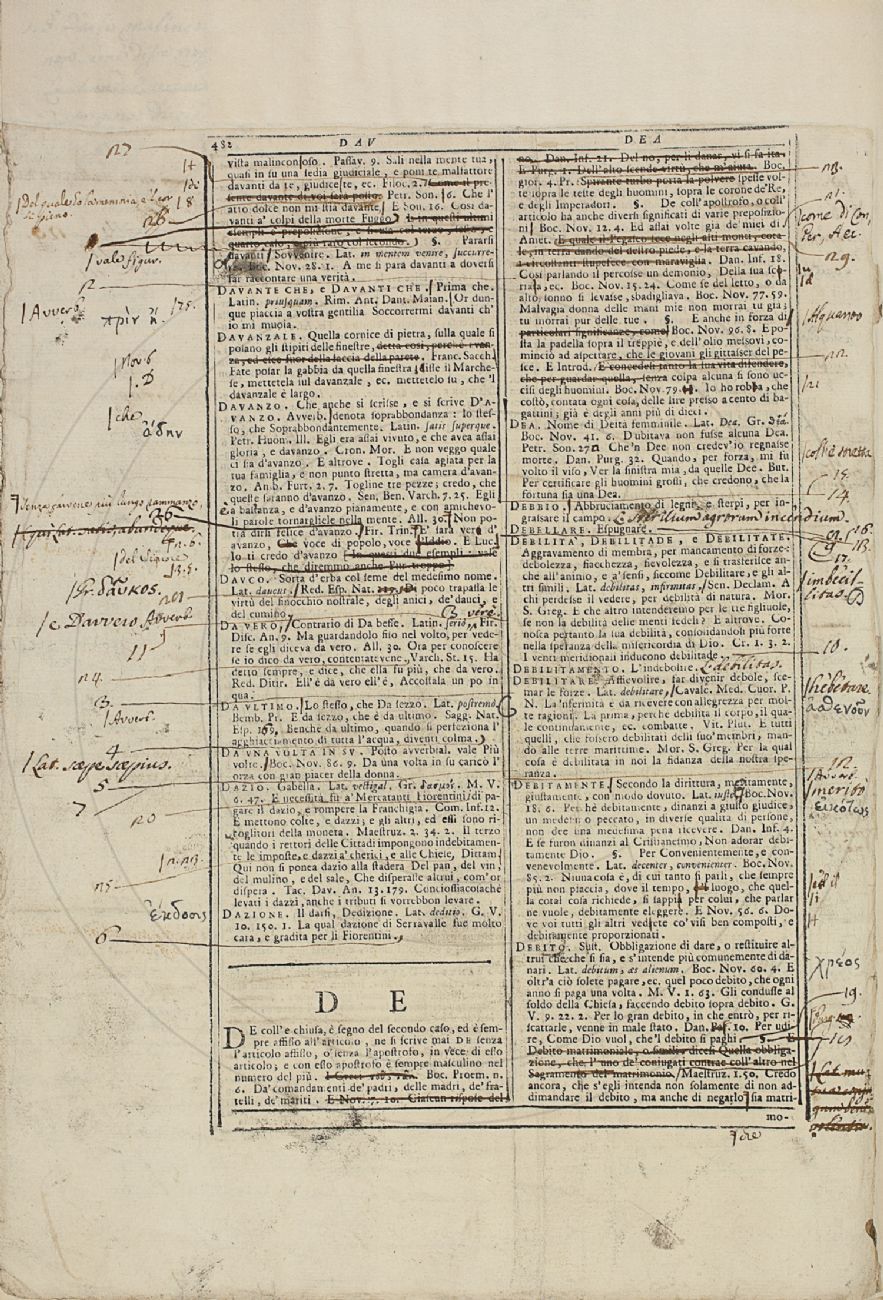 482 DAV DEA
vista malinconoso. Passav. 9. Sali nella mente tua,
quasi in su una sedia giudiciale, e poni te malfattore
davanti da te, giudice te, ec. Filoc. 2. 
Petr. Son. 16. Che l'
atto dolce non mi stia davante. E son. 16. Così da-
vanti a' colpi della morte Fuggo.
§. Pararsi
davanti Sovvenire. Lat. in mentem venire, succurre-
Boc. Nov. 28. 1. A me si para davanti a doversi
far raccontare una verità.
DAVANTE CHE, e DAVANTI CHE. Prima che.
Latin. priusquam. Rim. Ant. Dant. Maian. Or dun-
que piaccia a vostra gentilia Soccorrermi davanti ch'
io mi muoia.
DAVANZALE. Quella cornice di pietra, sulla quale si
posano gli stipiti delle finestre, detta così, perchè avan-
za, ed esce fuor della faccia della parete. Franc. Sacch.
Fate posar la gabbia da quella finestra, disse il Marche-
se, mettetela sul davanzale, ec. mettetelo su, che 'l
davanzale è largo.
DAVANZO. Che anche si scrisse, e si scrive D'A-
VANZO. Avverb. denota soprabbondanza: lo stes-
so, che Soprabbondantemente. Latin. satis superque.
Petr. Huom. Ill. Egli era assai vivuto, e che avea assai
gloria, e davanzo. Cron. Mor. E non veggo quale
ci sia d'avanzo. E altrove. Togli casa agiata per la
tua famiglia, e non punto stretta, ma camera d'avan-
zo. Amb. Furt. 2. 7. Togline tre pezze; credo, che
quelle saranno d'avanzo. Sen. Ben. Varch. 7. 25. Egli
è a bastanza, e d'avanzo pianamente, e con amichevo-
li parole tornargliele nella mente. All. 30. Non po-
tia dirsi felice d'avanzo. Fir. Trin. E' sarà vero d'
avanzo, Che voce di popolo, voce E Luc.
Io ti credo d'avanzo In questi due esempli: vale
lo stesso, che diremmo anche Pur troppo
DAUCO. Sorta d'erba col seme del medesimo nome.
Lat. daucus. Red. Esp. Nat. Di poco trapassa le
virtù del finocchio nostrale, degli anici, de' dauci, e
del cumino.
DA VERO, Contrario di Da beffe. Latin. serio. Fir.
Disc. An. 9. Ma guardandolo fiso nel volto, per vede-
re se egli diceva da vero. All. 30. Ora per conoscere
se io dico da vero, contentatevene. Varch. St. 15. Ha
detto sempre, e dice, che ella fu più, che da vero.
Red. Ditir. Ell'è da vero ell'è, Accostala un po in
qua.
DA ULTIMO. Lo stesso, che Da sezzo. Lat. postremo.
Bemb. Pr. E da sezzo, che è da ultimo. Sagg. Nat.
Esp. Benchè da ultimo, quando si perfeziona l'
agghiacciamento di tutta l'acqua, diventi colma.
DA UNA VOLTA IN SU. Posto avverbial. vale Più
volte. Boc. Nov. 86. 9. Da una volta in su caricò l'
orza con gran piacer della donna.
DAZIO. Gabella. Lat. vectigal. Gr. δασμός. M. V.
6. 47. E necessità fu a' Mercatanti Fiorentini di pa-
gare il dazio, e rompere la Franchigia. Com. Inf. 12.
E mettono colte, e dazzi; e gli altri, ed essi sono ri-
coglitori della moneta. Maestruz. 2. 34. 2. Il terzo
quando i rettori delle Cittadi impongono indebitamen-
te le imposte, e dazzi a' cherici, e alle Chiese, Dittam.
Qui non si ponea dazio alla stadera Del pan, del vin,
del mulino, e del sale, Che disperasse altrui, com'or
dispera. Tac. Dav. An. 13. 179. Conciossiacosachè
levati i dazzi, anche i tributi si vorrebbon levare.
DAZIONE. Il darsi, Dedizione. Lat. deditio. G. V.
10. 150. 1. La qual dazione di Serravalle fue molto
cara, e gradita per li Fiorentini.
D E
DE coll'e chiusa, è segno del secondo caso, ed è sem-
pre affisso all'articolo, ne si scrive mai DE senza
l'articolo affisso, o senza l'apostrofo, in vece di esso
articolo; e con esso apostrofo è sempre masculino nel
numero del più. Boc. Proem. n.
6. Da' comandamenti de' padri, delle madri, de' fra-
telli, de' mariti. E Nov. 7. 10. Ciascun rispose del
no. Dan. Inf. 21. Del no, per li danar, vi si fa ita.
E Purg. 1. Dell'alto scende virtù, che m'aiuta. Boc.
gior. 4. Pr. Spirante turbo porta la polvere spesse vol-
te sopra le teste degli huomini, sopra le corone de' Re,
e degli Imperadori. §. De coll'apostrofo, o coll'
articolo ha anche diversi significati di varie preposizio-
ni. Boc. Nov. 12. 4. Ed assai volte già de' miei dì
Amet. E quale il Pegaseo fece negli alti monti, cota-
le, in terra dando del destro piede, e la terra cavando,
i circostanti stupefece con maraviglia. Dan. Inf. 18.
Così parlando il percosse un demonio, Della sua scu-
riada, ec. Boc. Nov. 15. 24. Come se del letto, o da
alto sonno si levasse, sbadigliava. Boc. Nov. 77. 59.
Malvagia donna delle mani mie non morrai tu già;
tu morrai pur delle tue. §. E anche in forza di
particolari significanze, come Boc. Nov. 96. 8. E po-
sta la padella sopra il treppiè, e dell'olio messovi, co-
minciò ad aspettare, che le giovani gli gittasser del pe-
sce. E Introd. E concedesi tanto la sua vita difendere,
che per guardar quella, senza colpa alcuna si sono uc-
cisi degli huomini. Boc. Nov. 79. Io ho roba, che
costò, contata ogni cosa, delle lire presso a cento di ba-
gattini; già è degli anni più di dieci.
DEA. Nome di Deità femminile. Lat. Dea. Gr. θεά.
Boc. Nov. 41. 6. Dubitava non fusse alcuna Dea.
Petr. Son. 27 Ch'n Dee non credev'io regnasse
morte. Dan. Purg. 32. Quando, per forza, mi fu
volto il viso, Ver la sinistra mia, da quelle Dee. But.
Per certificare gli huomini grossi, che credono, che la
fortuna sia una Dea.
DEBBIO. Abbruciamento di legne, e sterpi, per in-
grassare il campo. sterilium agrorum incendium.
DEBELLARE. Espugnare.
DEBILITÀ, DEBILITADE, e DEBILITATE.
Aggravamento di membra, per mancamento di forze:
debolezza, fiacchezza, fievolezza, e si trasferisce an-
che all'animo, e a' sensi, siccome Debilitare, e gli al-
tri simili. Lat. debilitas, infirmitas. Sen. Declam. A
chi perdesse il vedere, per debilità di natura. Mor.
S. Greg. E che altro intenderemo per le tre figliuole,
se non la debilità delle menti fedeli? E altrove. Co-
nosca pertanto la sua debilità, consolandosi più forte
nella speranza della misericordia di Dio. Cr. 1. 3. 2.
I venti meridionali inducono debilitade.
DEBILITAMENTO. L'indebolire. debilitas.
DEBILITARE. Affievolire, far divenir debole, sce-
mar le forze. Lat. debilitare. Cavalc. Med. Cuor. P.
N. La 'nfermità è da ricevere con allegrezza per mol-
te ragioni. La prima, perchè debilita il corpo, il qua-
le continuamente, ec. combatte. Vit. Plut. E tutti
quelli, che fossero debilitati delli suo' membri, man-
dò alle terre marittime. Mor. S. Greg. Per la qual
cosa è debilitata in noi la fidanza della nostra spe-
ranza.
DEBITAMENTE. Secondo la dirittura, meritamente,
giustamente, con modo dovuto. Lat. iuste. Boc. Nov.
18. 6. Perchè debitamente, dinanzi a giusto giudice,
un medesimo peccato, in diverse qualità di persone,
non dee una medesima pena ricevere. Dan. Inf. 4.
E se furon dinanzi al Cristianesmo, Non adorar debi-
tamente Dio. §. Per Convenientemente, e con-
venevolmente. Lat. decenter, convenienter. Boc. Nov.
85. 2. Niuna cosa è, di cui tanto si parli, che sempre
più non piaccia, dove il tempo, luogo, che quel-
la cotal cosa richiede, si sappia per colui, che parlar
ne vuole, debitamente eleggere. E Nov. 56. 6. Do-
ve voi tutti gli altri vedete co' visi ben composti, e
debitamente proporzionati.
DEBITO. Sust. Obbligazione di dare, o restituire al-
trui che che si sia, e s'intende più comunemente di da-
nari. Lat. debitum, æs alienum. Boc. Nov. 60. 4. E
oltr'a ciò solete pagare, ec. quel poco debito, che ogni
anno si paga una volta. M. V. 1. 63. Gli condusse al
soldo della Chiesa, faccendo debito sopra debito. G.
V. 9. 22. 2. Per lo gran debito, in che entrò, per ri-
scattarle, venne in male stato. Dan. 10. Per udi-
re, Come Dio vuol, che 'l debito si paghi §. E
Debito matrimoniale, o simile, dicesi Quella obbliga-
zione, che l'uno de' conjugati contrae coll'altro nel
Sagramento del matrimonio. Maestruz. 1. 50. Credo
ancora, che s'egli intenda non solamente di non ad-
dimandare il debito, ma anche di negarlo sia matri-
mo-
n7
18
vale figur.
Avverb.
πρὶν ἢ.
che
ἄδην
δαῦκος.
e Davvero Avverb
11
n4.
3.
Avverb.
4
Lat. sæpe sæpius.
5
7
20
n5.
ἔκδοσις
6
n8.
n9.
15.
14.
16.
17.
imbecil-
litas
10.
hebetare
merito
εἰκότως
χρέος
19.